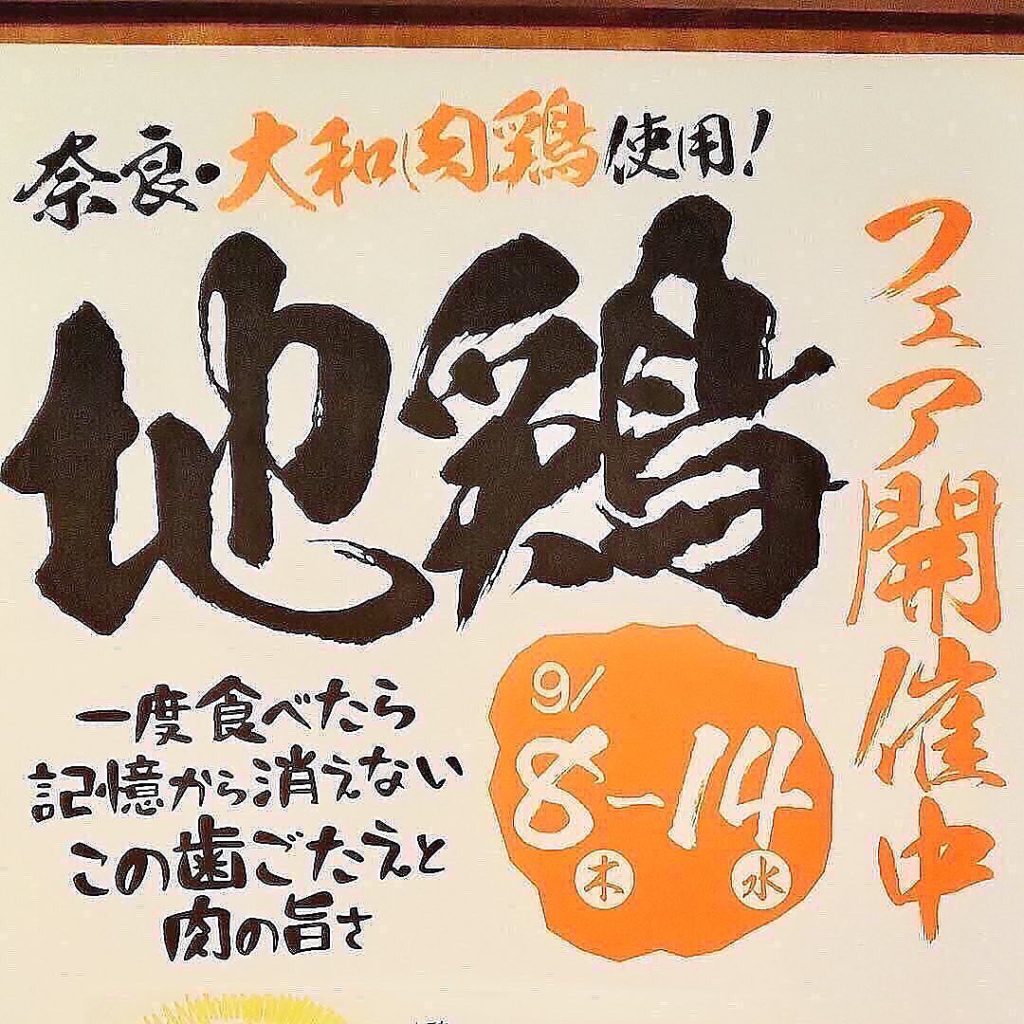 奈良・大和肉鶏使用!
地鶏
フェア開催中
一度食べたら
記憶から消えない
この歯ごたえと
肉の旨さ
9/
8－14
木 水